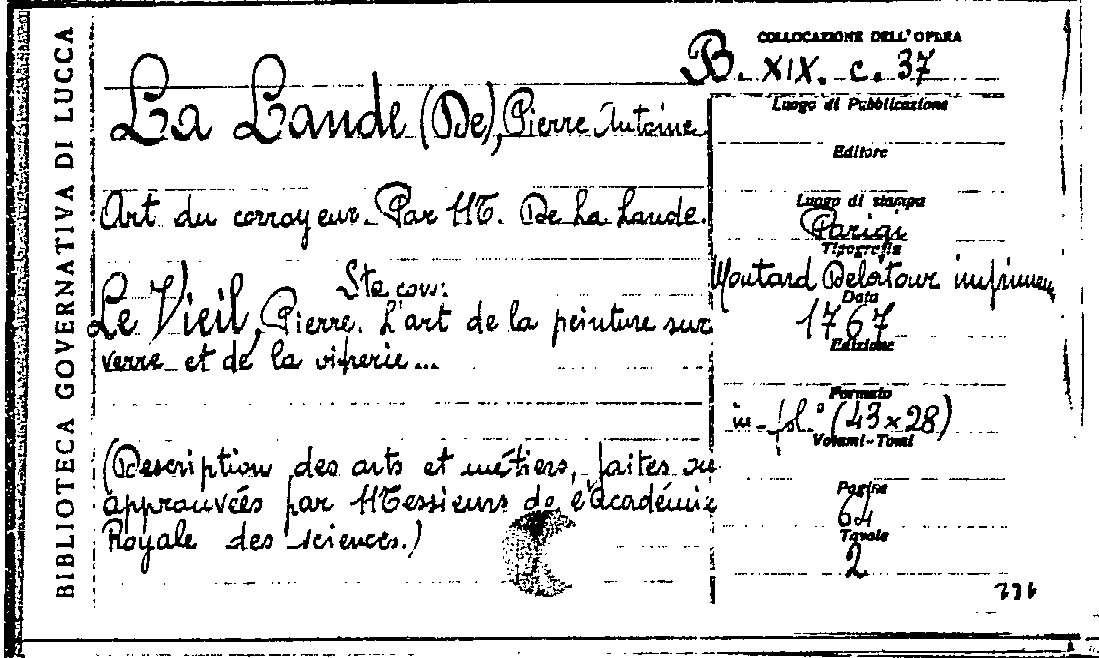 BIBLIOTECA GOVERNATIVA DI LUCCA
COLLOCAZIONE DELL'OPERA
B. XIX. c. 37
La Lande (De), Pierre Antoine
Art du corroyeur. Par M. De La Lande.
Sta con:
Le Vieil, Pierre. L'art de la peinture sur
verre et de la vitrerie...
(Description des arts et métiers, faites ou
approuvées par Messieurs de l'Académie
Royale des sciences.)
Luogo di Pubblicazione
Editore
Luogo di stampa
Parigi
Tipografia
Moutard Delatour imprimeur
Data
1767
Edizione
Formato
in-fol° (43×28)
Volumi-Tomi
Pagine
64
Tavole
2